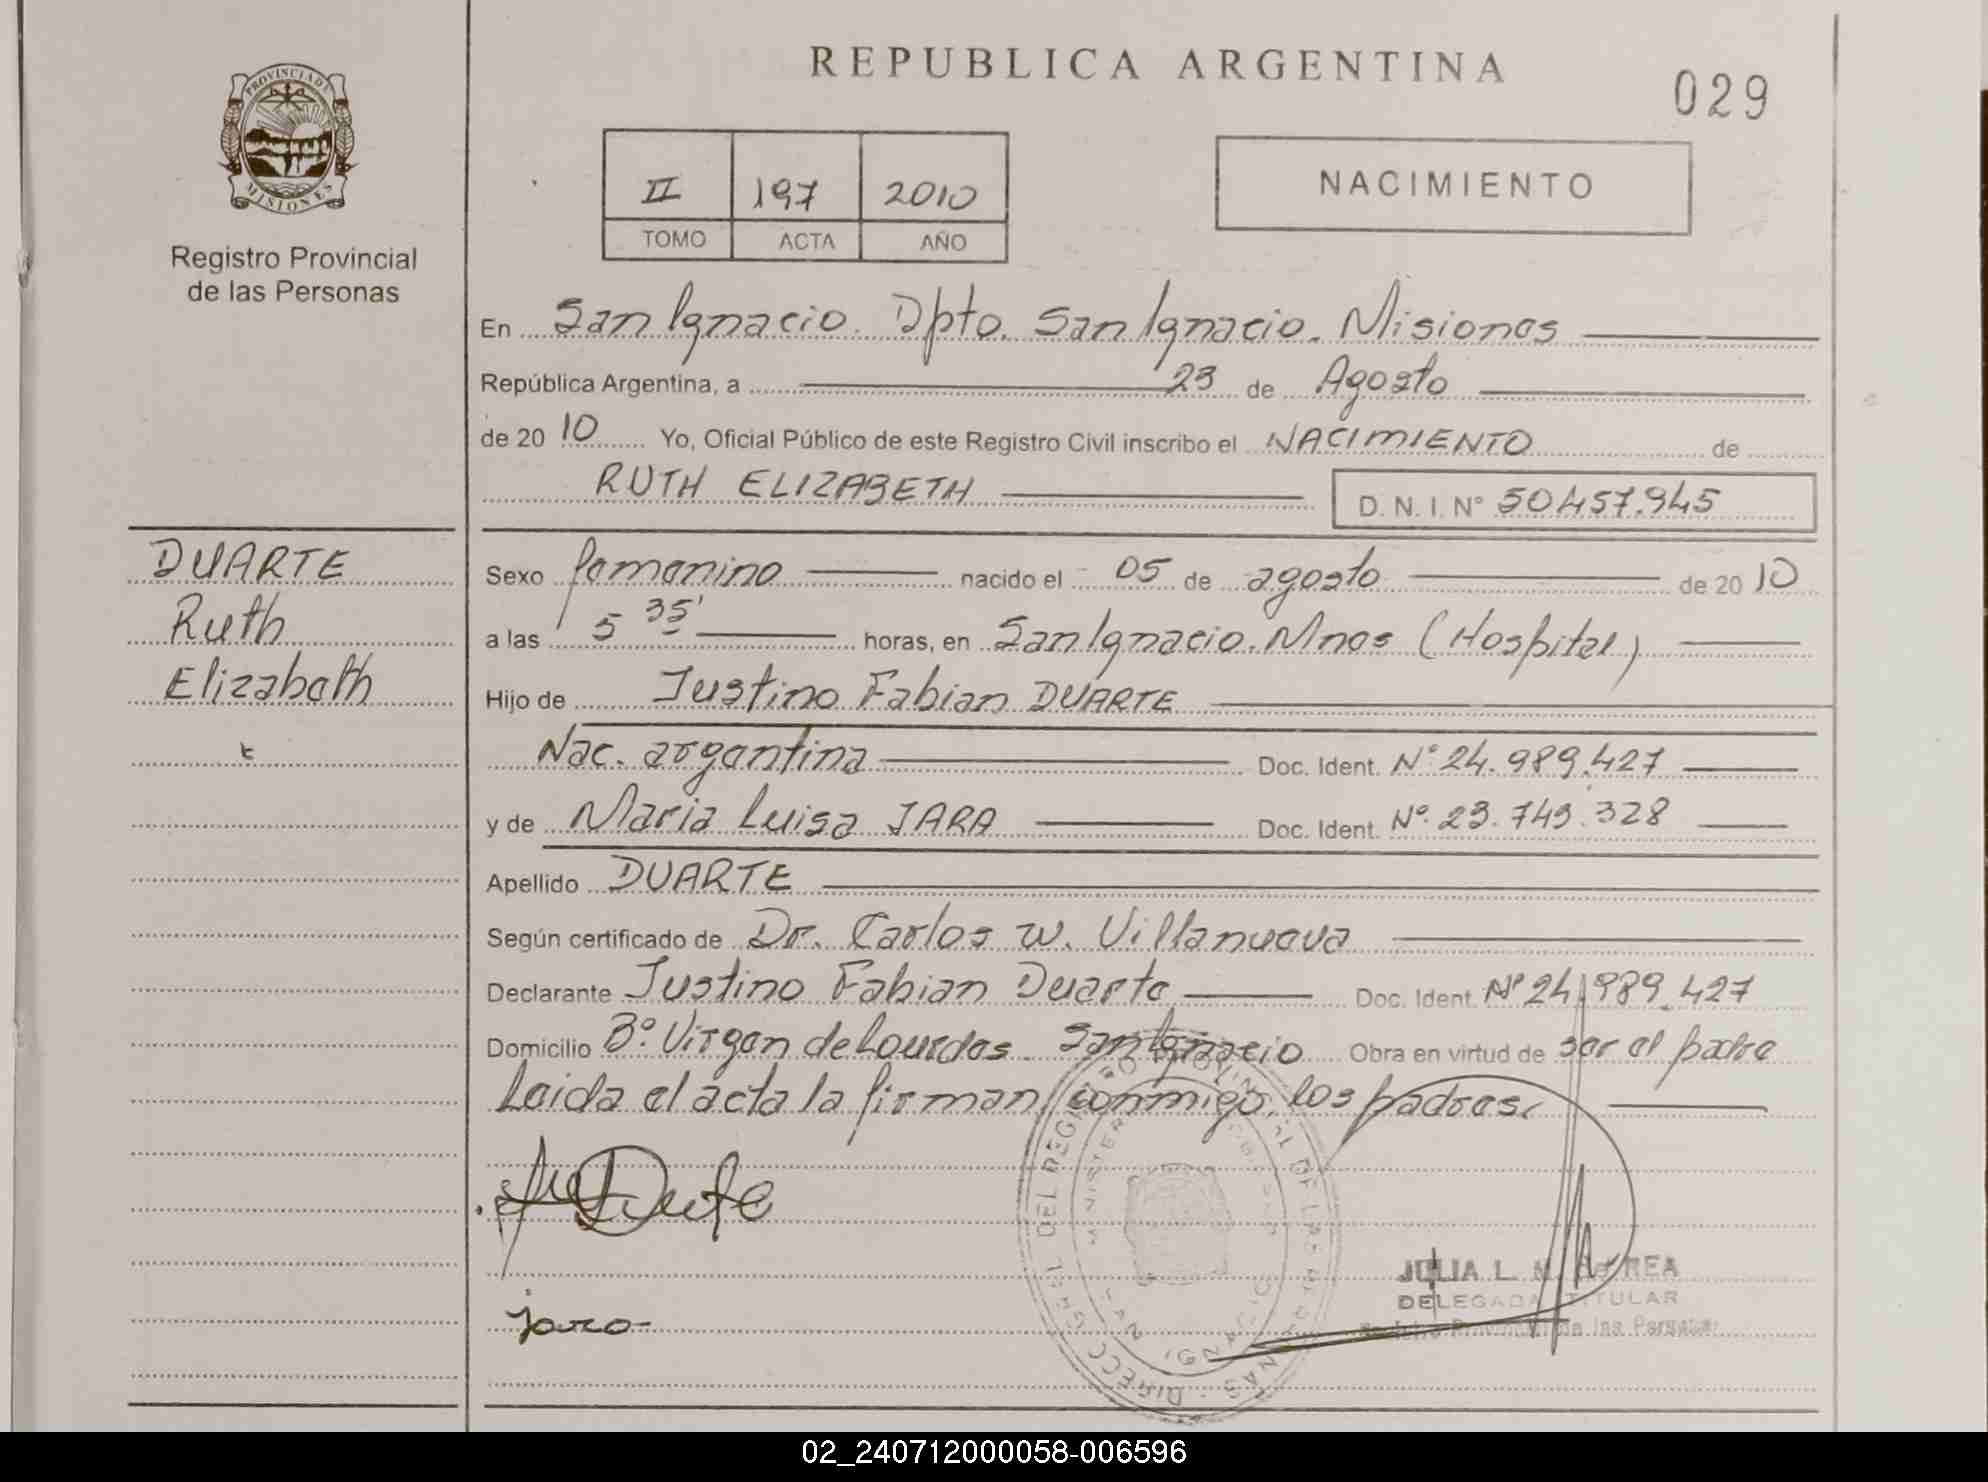 REPUBLICA ARGENTINA
029
PROVINCIA DE
MISIONES
Registro Provincial
de las Personas
II 197 2010
TOMO ACTA AÑO
NACIMIENTO
En San Ignacio. Dpto. San Ignacio. Misiones
República Argentina, a 23 de Agosto
de 20 10 Yo, Oficial Público de este Registro Civil inscribo el NACIMIENTO de
RUTH ELIZABETH D. N. I. N° 50.457.945
DUARTE
Ruth
Elizabeth
Sexo femenino nacido el 05 de agosto de 20 10
a las 5 35' horas, en San Ignacio. Mnes (Hospital)
Hijo de Justino Fabian DUARTE
Nac. argentina Doc. Ident. N° 24.989.427
y de Maria Luisa JARA Doc. Ident. N° 23.749.328
Apellido DUARTE
Según certificado de Dr. Carlos W. Villanueva
Declarante Justino Fabian Duarte Doc. Ident. N° 24.989.427
Domicilio B° Virgen de Lourdes San Ignacio Obra en virtud de ser el padre
Leida el acta la firman conmigo, los padres.
JULIA L. REA
DELEGADA TITULAR
jara
02_240712000058-006596